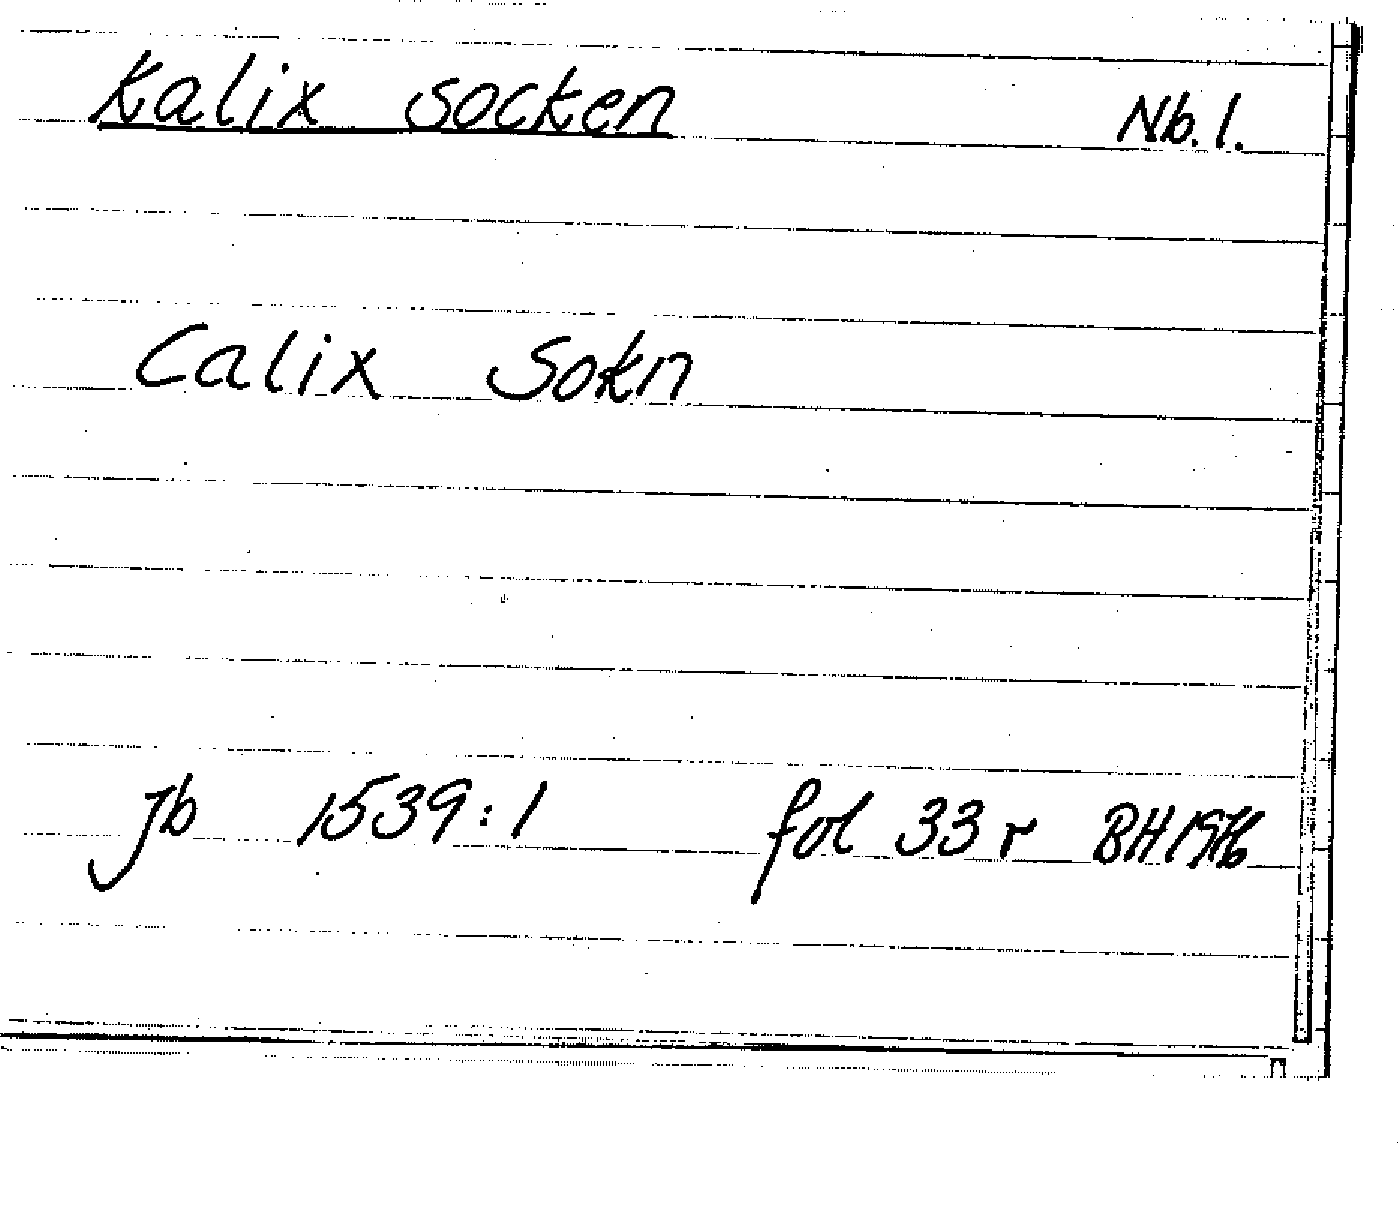 Kalix socken Nb. 1.
Calix Sokn
Jb 1539:1 fol 33 r BH 1976